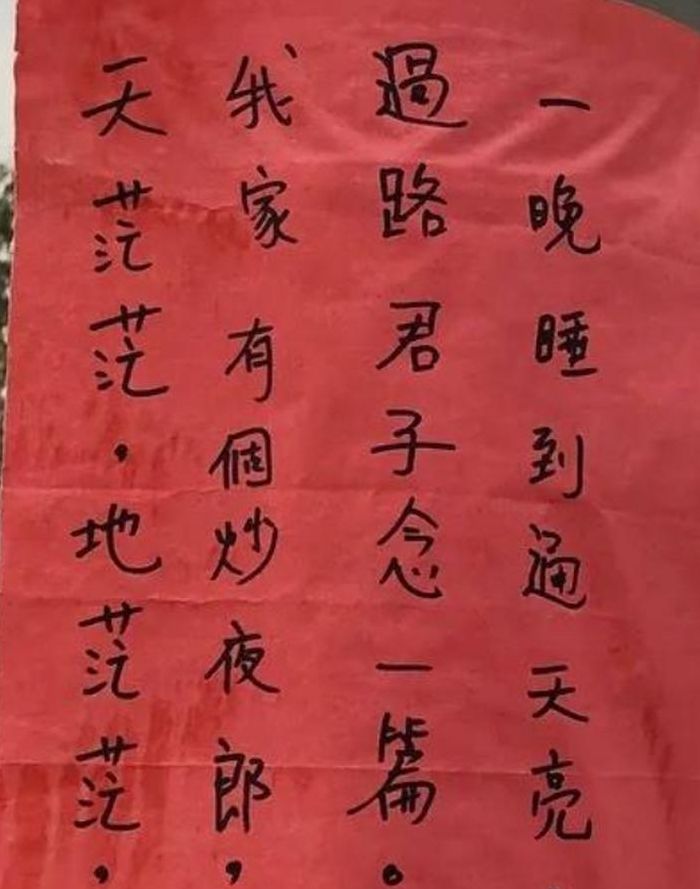 天茫茫，地茫茫，
我家有個炒夜郎，
過路君子念一篇。
一晚睡到通天亮